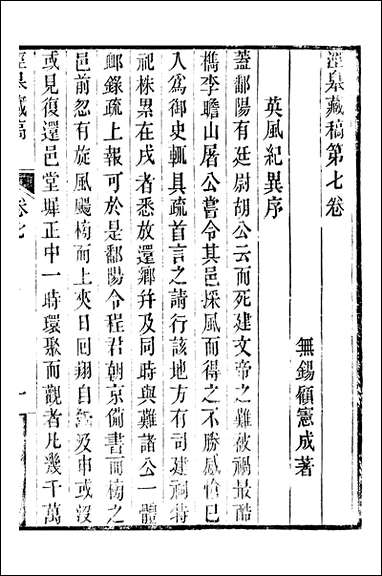 涇臯藏稿第七卷
無錫顧憲成著
英風紀異序
蓋鄱陽有廷尉胡公云而死建文帝之難被禍最酷
檇李瞻山屠公嘗令其邑採風而得之不勝感愴已
入為御史輒具疏首言之請行該地方有司建祠特
祀株累在戍者悉放還鄉幷及同時與難諸公一體
卹錄疏上報可於是鄱陽令程君朝京備書而榜之
邑前忽有旋風颺榜而上夾日回翔自午及申或沒
或見復還邑堂墀正中一時環聚而觀者凡幾千萬
涇臯藏稿
卷七
一